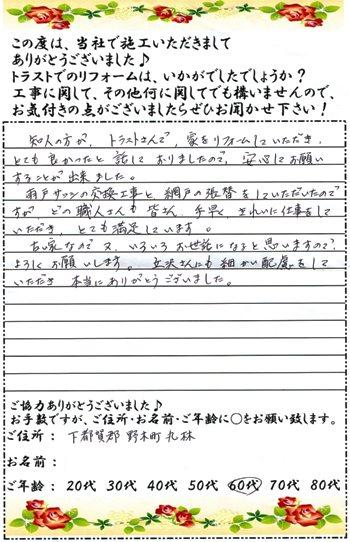 この度は、当社で施工いただきまして
ありがとうございました♪
トラストでのリフォームは、いかがでしたでしょうか？
工事に関して、その他何に関してでも構いませんので、
お気付きの点がございましたらぜひお聞かせ下さい！
知人の方が、トラストさんで、家をリフォームしていただき、
とても良かったと話しておりましたので、安心してお願い
することが出来ました。
雨戸サッシの交換工事と網戸の張替をしていただいたので
すが どの職人さんも皆さん、手早く、きれいに仕事をして
いただき、とても満足しています。
古い家なので又、いろいろお世話になると思いますので、
よろしくお願いします。 立沢さんにも細かい配慮をして
いただき 本当にありがとうございました。
ご協力ありがとうございました♪
お手数ですが、ご住所・お名前・ご年齢に○をお願い致します。
ご住所： 下都賀郡 野木町 丸林
お名前：
ご年齢： 20代 30代 40代 50代 60代 70代 80代